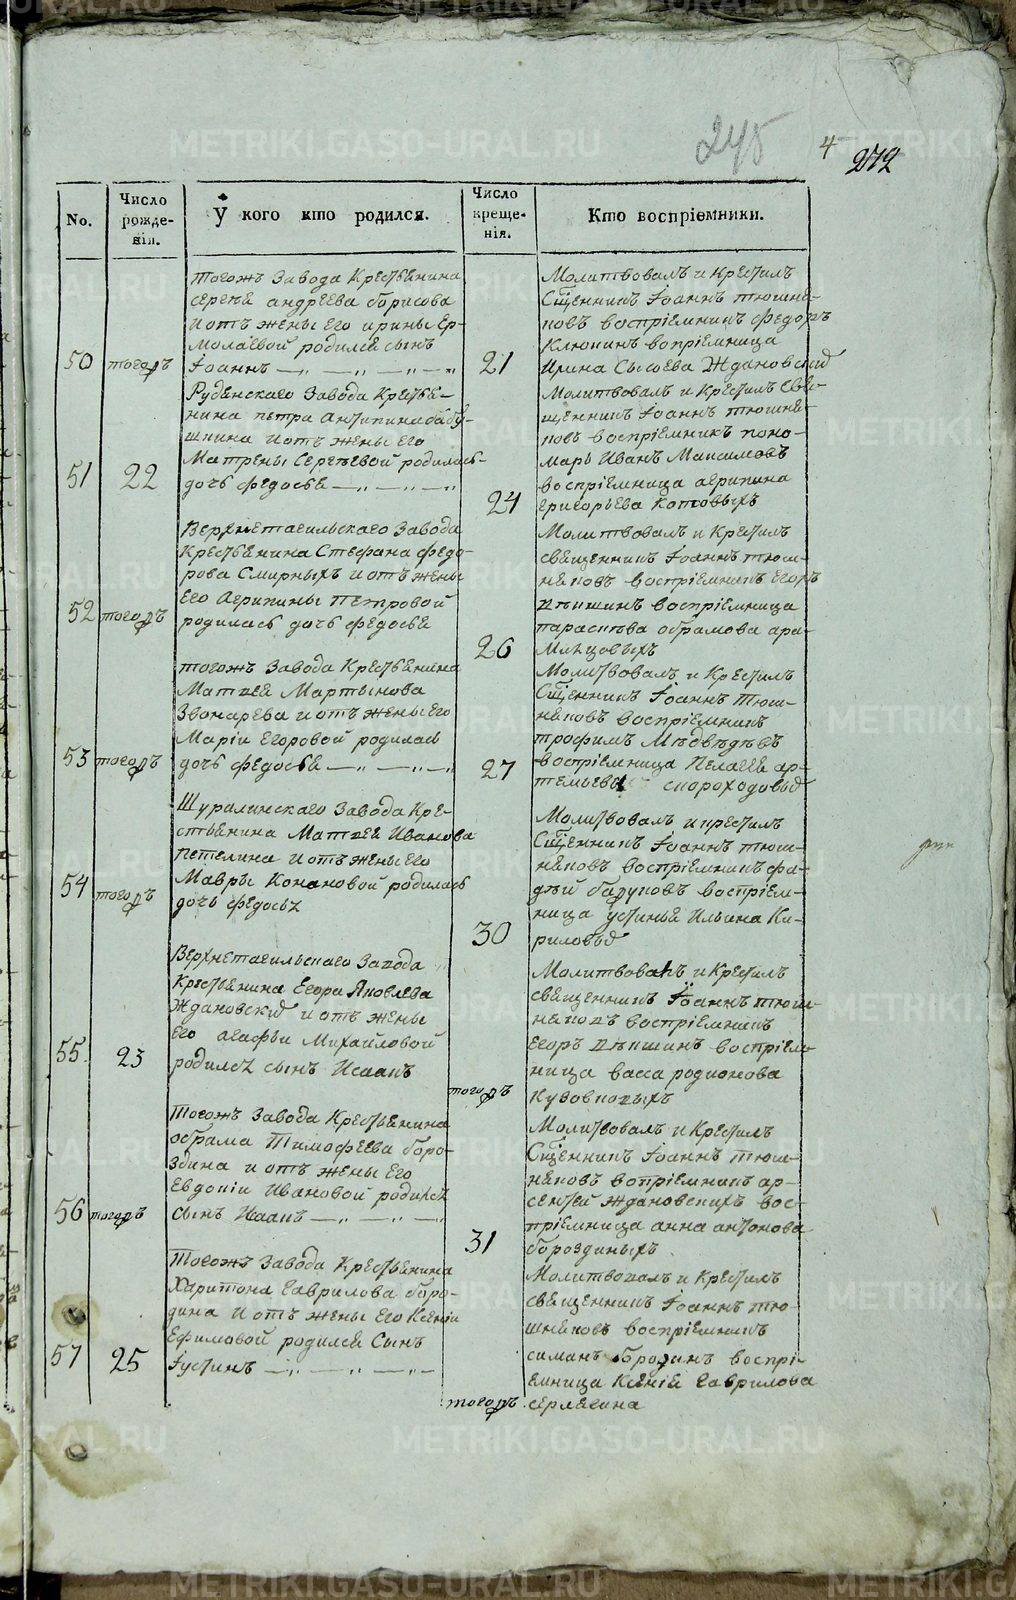 245
4
272
No.
Число рожде-нія.
У кого кто родился.
Число креще-нія.
Кто воспріемники.
50
тогожъ
тогожъ Завода Крестьянина
Сергея Андреева Борисова
и отъ жены Его Ирины Ер-
молаевой родился сынъ
Іоаннъ
21
Молитвовалъ и Крестилъ
Сщенникъ Іоаннъ Тюшня-
ковъ воспріемникъ Федоръ
Клюкинъ вопріемница
Ирина Сысоева Ждановскид
51
22
Рудянскаго Завода Крестья-
нина Петра Антипина Бабу-
шкина и отъ жены Его
Матрены Сергѣевой родилась
дочь Федосья
24
Молитвовалъ и Крестилъ Свя-
щенникъ Іоаннъ Тюшня-
ковъ воспріемникъ поно-
марь Иванъ Максимовъ
воспріемница Агрипина
Григорьева Котовыхъ
52
тогожъ
Верхнетагильскаго Завода
Крестьянина Стефана Федо-
рова Смирныхъ и отъ жены
Его Агрипины Петровой
родилась дочь Федосья
26
Молитвовалъ и Крестилъ
священникъ Іоаннъ Тюш-
няковъ воспріемникъ Егоръ
воспріемница
Параскѣва Обрамова Ара-
мильцовыхъ
53
тогожъ
тогожъ Завода Крестьянина
Матвея Мартынова
Звонарева и отъ жены Его
Маріи Егоровой родилась
дочь Федосья
27
Молитвовалъ и Крестилъ
Сщенникъ Іоаннъ Тюш-
няковъ воспріемникъ
Трофимъ Мѣдвѣдевъ
воспріемница Пелагея Ар-
темьевы скороходовыд
54
тогожъ
Шуралинскаго Завода Кре-
стьянина Матвея Иванова
Петелина и отъ жены Его
Мавры Конановой родилась
дочь Федосья
30
Молитвовалъ и крестилъ
Сщенникъ Іоаннъ Тюш-
няковъ воспріемникъ Фа-
дѣй воспріем-
ница Устинья Ильина Ки-
риловыд
55
23
Верхнетагильскаго Завода
Крестьянина Егора Яковлева
Ждановскид и отъ жены
Его Агафьи Михайловой
родился сынъ Исаакъ
тогожъ
Молитвовалъ и Крестилъ
священникъ Іоаннъ Тюш-
няковъ воспріемникъ
Егоръ воспріем-
ница Васса Родионова
Кузовковыхъ
56
тогожъ
Тогожъ Завода Крестьянина
Обрама Тимофеева Боро-
здина и отъ жены Его
Евдокіи Ивановой родился
сынъ Исаакъ
31
Молитвовалъ и Крестилъ
Сщенникъ Іоаннъ Тюш-
няковъ вопріемникъ Ар-
сентей Ждановскихъ вос-
пріемница Анна Антонова
Бороздиныхъ
57
25
Тогожъ Завода Крестьянина
Харитона Гаврилова Боро-
дина и отъ жены Его Ксеніи
Ефимовой родился Сынъ
Іустинъ
тогожъ
Молитвовалъ и Крестилъ
священникъ Іоаннъ Тю-
шняковъ воспріемникъ
Симанъ Бородинъ воспрі-
емница Ксенія Гаврилова
METRIKI.GASO-URAL.RU